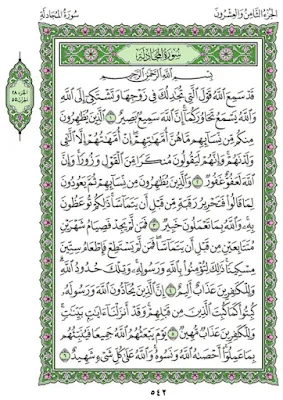 الجزء الثامن والعشرون
سورة المجادلة
سُورَةُ المُجَادلَة
بِسْمِ اللَّهِ الرَّحْمَٰنِ الرَّحِيمِ
قَدْ سَمِعَ اللَّهُ قَوْلَ الَّتِي تُجَادِلُكَ فِي زَوْجِهَا وَتَشْتَكِي إِلَى اللَّهِ
وَاللَّهُ يَسْمَعُ تَحَاوُرَكُمَا إِنَّ اللَّهَ سَمِيعٌ بَصِيرٌ ١ الَّذِينَ يُظَاهِرُونَ
مِنكُم مِّن نِّسَائِهِم مَّا هُنَّ أُمَّهَاتِهِمْ إِنْ أُمَّهَاتُهُمْ إِلَّا الَّتِي
وَلَدْنَهُمْ وَإِنَّهُمْ لَيَقُولُونَ مُنكَرًا مِّنَ الْقَوْلِ وَزُورًا وَإِنَّ
اللَّهَ لَعَفُوٌّ غَفُورٌ ٢ وَالَّذِينَ يُظَاهِرُونَ مِن نِّسَائِهِمْ ثُمَّ يَعُودُونَ
لِمَا قَالُوا فَتَحْرِيرُ رَقَبَةٍ مِّن قَبْلِ أَن يَتَمَاسَّا ذَٰلِكُمْ تُوعَظُونَ
بِهِ وَاللَّهُ بِمَا تَعْمَلُونَ خَبِيرٌ ٣ فَمَن لَّمْ يَجِدْ فَصِيَامُ شَهْرَيْنِ
مُتَتَابِعَيْنِ مِن قَبْلِ أَن يَتَمَاسَّا فَمَن لَّمْ يَسْتَطِعْ فَإِطْعَامُ سِتِّينَ
مِسْكِينًا ذَٰلِكَ لِتُؤْمِنُوا بِاللَّهِ وَرَسُولِهِ وَتِلْكَ حُدُودُ اللَّهِ
وَلِلْكَافِرِينَ عَذَابٌ أَلِيمٌ ٤ إِنَّ الَّذِينَ يُحَادُّونَ اللَّهَ وَرَسُولَهُ
كُبِتُوا كَمَا كُبِتَ الَّذِينَ مِن قَبْلِهِمْ وَقَدْ أَنزَلْنَا آيَاتٍ بَيِّنَاتٍ
وَلِلْكَافِرِينَ عَذَابٌ مُّهِينٌ ٥ يَوْمَ يَبْعَثُهُمُ اللَّهُ جَمِيعًا فَيُنَبِّئُهُم
بِمَا عَمِلُوا أَحْصَاهُ اللَّهُ وَنَسُوهُ وَاللَّهُ عَلَىٰ كُلِّ شَيْءٍ شَهِيدٌ ٦
٥٤٢